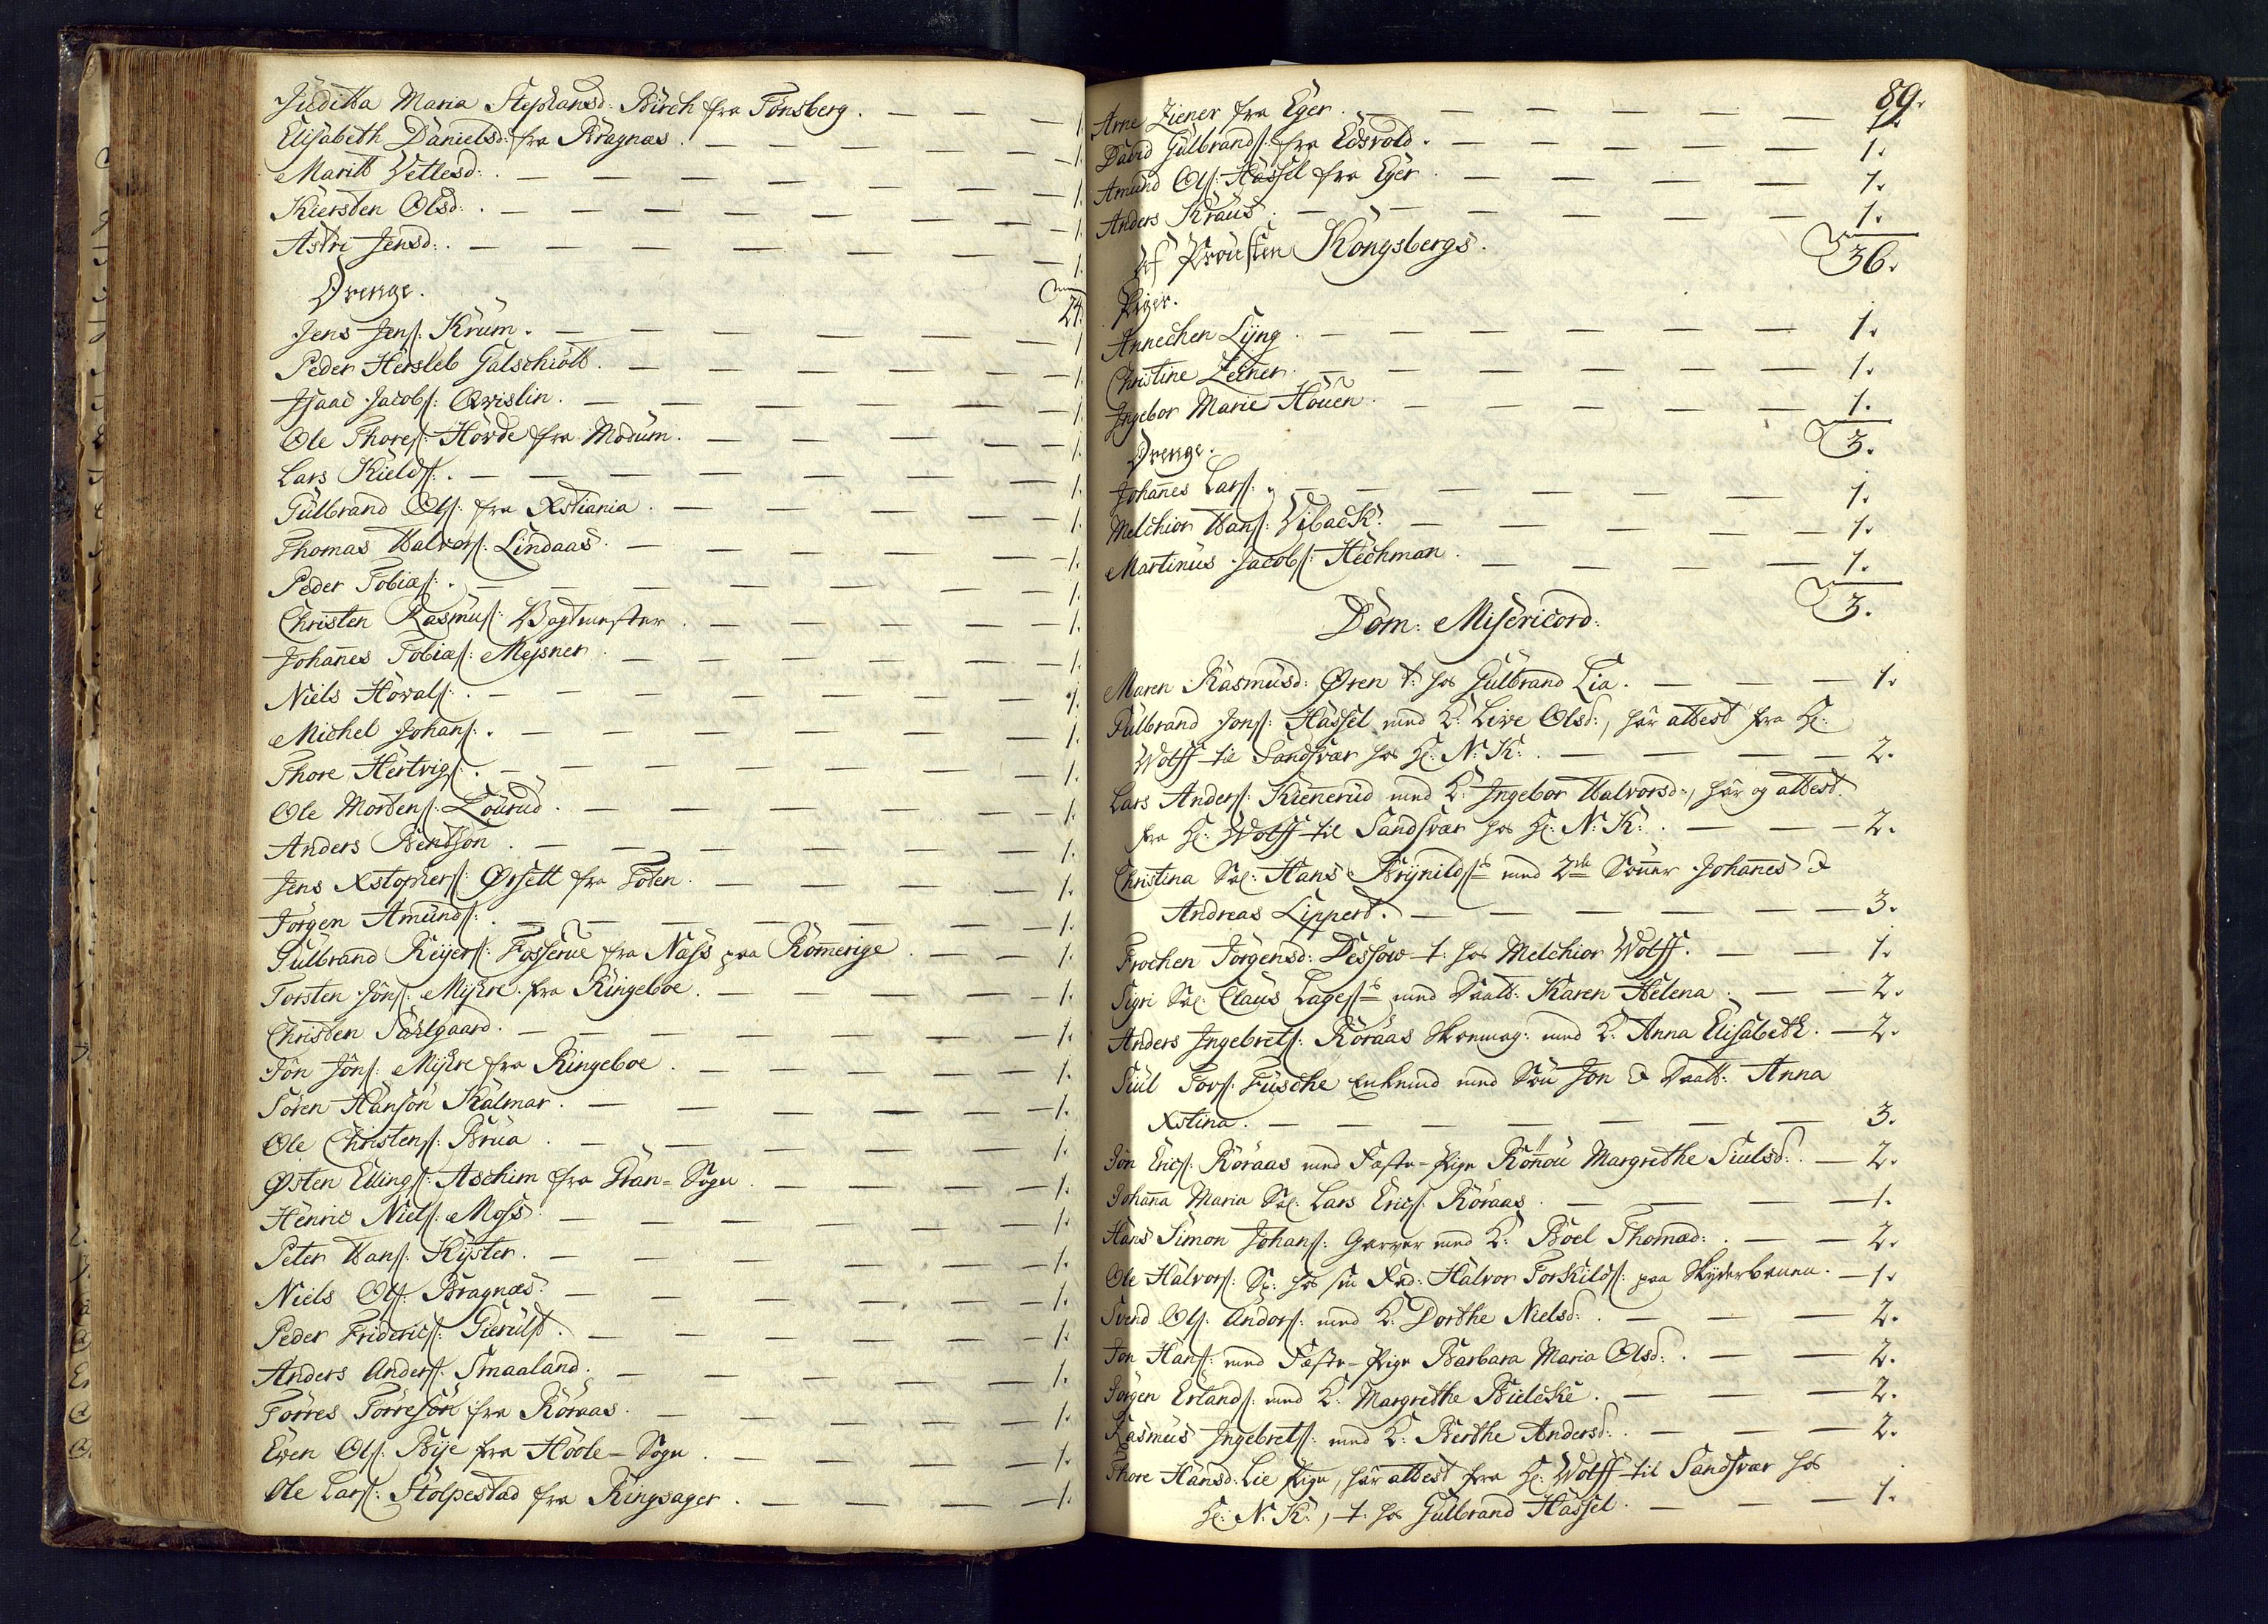 Juditta Maria Stephansd: Birch fra Tønsberg. 1.
Elisabeth Danielsd: fra Bragnæs. 1.
Maritt Vettesd: 1.
Kiersten Olsd: 1.
Astri Jensd: 1.
24.
Drenge.
Jens Jens: Krum. 1
Peder Hersleb Galschiött. 1.
Isaac Jacobs: Qvislin. 1.
Ole Thores: Hovde fra Modum. 1.
Lars Kields: 1.
Gulbrand Ols: fra Xstiania. 1.
Thomas Halvors: Lindaas. 1.
Peder Tobias: 1.
Christen Rasmus: Vagtmester 1.
Johañes Tobias: Mejsner 1.
Niels Hovals: 1.
Michel Johans: 1.
Thore Hertvigs: 1.
Ole Mortens: Lourud. 1.
Anders Bendtson. 1.
Jens Xstophers: Ørsett fra Toten. 1.
Jörgen Amunds: 1.
Gulbrand Reijers: Fosserue fra Næss paa Romerige 1.
Torsten Jöns: Myhre fra Ringeboe. 1.
Christen Dahlgaard. 1.
Jön Jöns: Myhre fra Ringeboe. 1.
Sören Hanson Kalmar. 1.
Ole Christens: Brua. 1.
Østen Ellings: Aschim fra Gran-Sogn 1.
Henric Niels: Moss. 1.
Peter Hans: Kyster. 1.
Niels Ols: Bragnæs. 1.
Peder Friderics: Gierulst. 1.
Anders Anders: Smaaland. 1.
Torres Torresön fra Röraas. 1.
Even Ols: Bye fra Hoole-Sogn 1.
Ole Lars: Stolpestad fra Ringsager. 1.
89.
Arne Ziener fra Eger. 1.
David Gulbrands: fra Edsvold. 1.
Amund Ols: Hassel fra Eger. 1.
Anders Kraus. 1.
36.
Af Provsten Kongsbergs.
Piger.
Annechen Lyng 1.
Christine Zeiner. 1.
Ingebor Marie Höuen 1.
3.
Drenge.
Johañes Lars: 1.
Melchior Hans: Viback. 1.
Martinus Jacobs: Hechman. 1.
3.
Dom: Misericord:
Maren Rasmusd: Øren t: hos Gulbrand Lia. 1.
Gulbrand Jons: Hassel med K: Live Olsd:, har attest fra Hr:
Wolff til Sandsvær hos Hr: N: K: 2.
Lars Anders: Kieñerud med K: Ingebor Halvorsd:, har og attest
fra Hr: Wolff til Sandsvær hos Hr: N: K: 2.
Christina Sal: Hans Brynilds: med 2de Söner Johañes &
Andreas Lippert. 3.
Frochen Jörgensd: Dessow t. hos Melchior Wolff. 1.
Sigri Sal: Claus Lages: med Daatt: Karen Helena. 2.
Anders Ingebrets: Röraas Skomag: med K: Anna Elisabeth. 2.
Siul Tors: Fusche Enkemand med Sön Jon & Daatt: Anna
Xstina. 3.
Jön Erics: Röraas med Fæste-Pige Roñou Margrethe Siulsd: 2.
Johaña Maria Sal: Lars Erics: Röraas. 1.
Hans Simon Johans: Garver med K: Boel Thomæd: 2.
Ole Halvors: hos sin Fad: Halvor Torkilds: paa Skyderbanen. 1.
Svend Ols: Anders: med K: Dorthe Nielsd: 2.
Jon Hans: med Fæste-Pige Barbara Maria Olsd: 2.
Jörgen Erlands: med K: Margrethe Bielcke. 2.
Rasmus Ingebrets: med K: Berthe Andersd: 2.
Thore Hansd: Lie Pige, har attest fra Hr: Wolff til Sandsvær hos
Hr: N: K:, t. hos Gulbrand Hassel. 1.